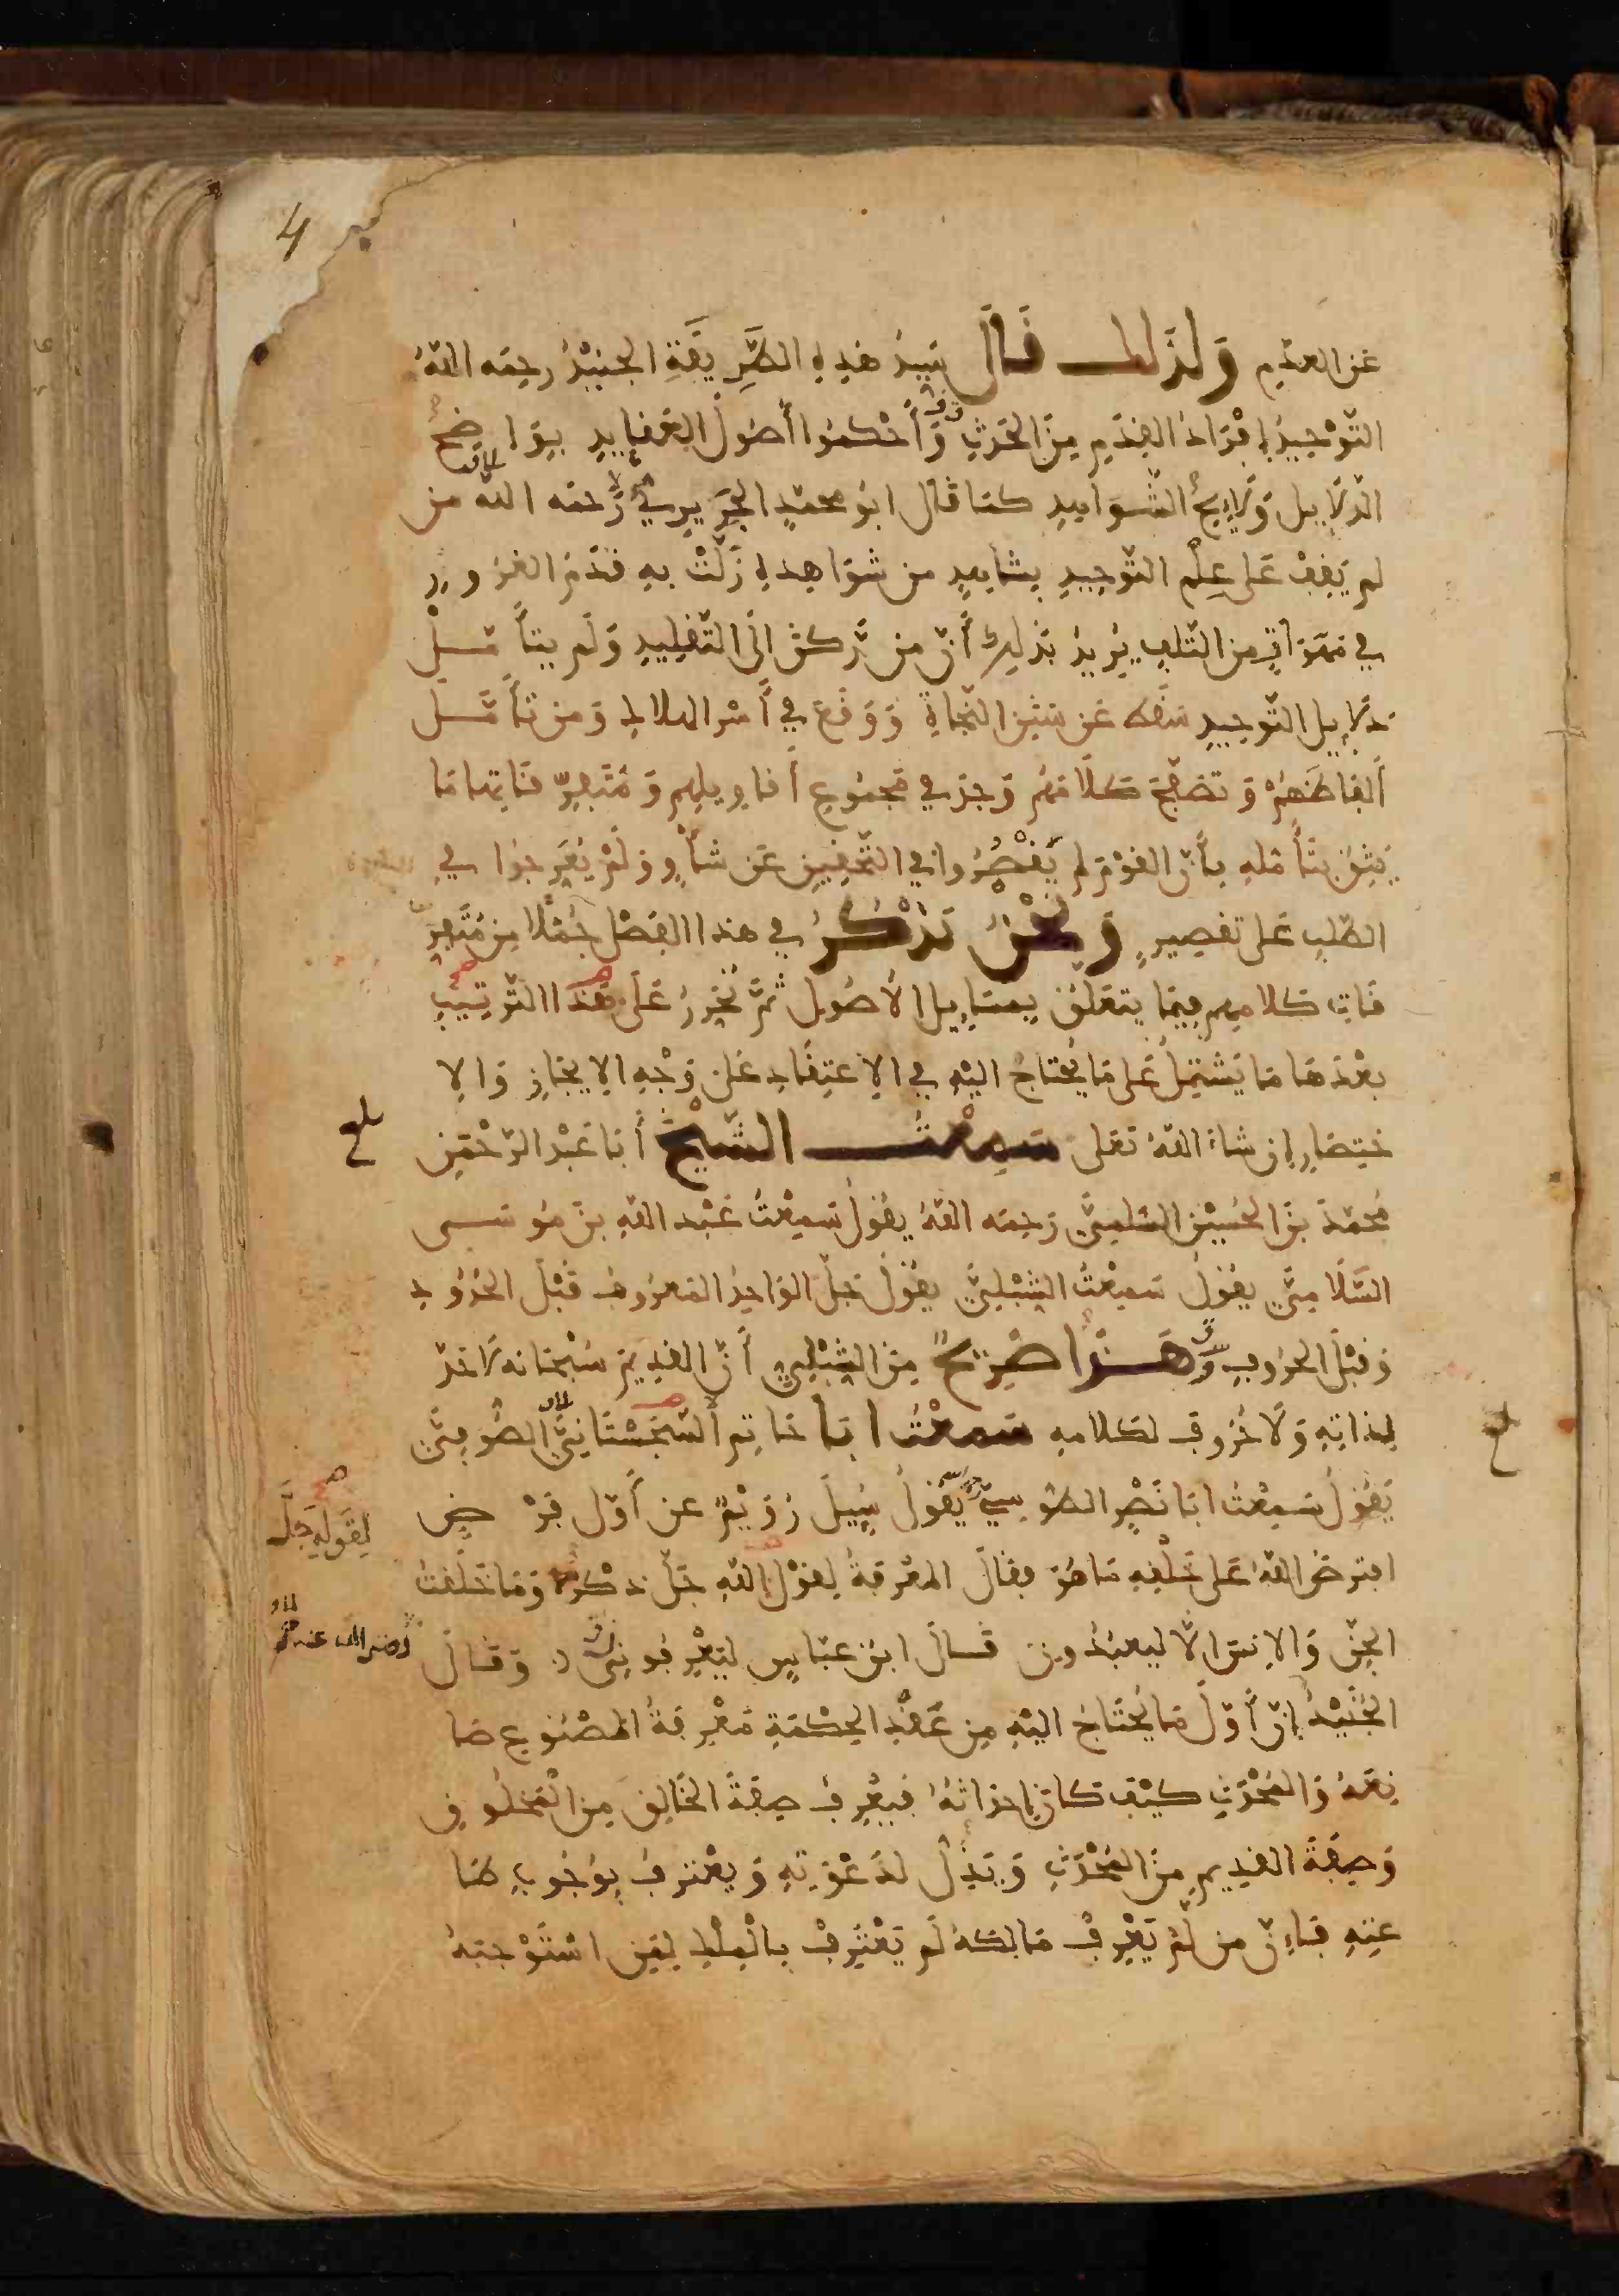 4
عَن العدَم وَلذَلك قَالَ سَيدُ هَذِهِ الطَّرِيقَةِ الجنَيْدُ رحِمَه اللهُ
التّوْحِيدُ إفْرَادُ القِدَم مِنَ الحَدَثِ وَأحْكمُوا أصُولَ العَقايِدِ بِوَاضِح
الدّلَايِل وَلَايِحِ الشّوَاهِدِ كمَا قَال ابُو محمّدٍ الجُرَيرِيُّ رَحمَه الله من
لم يَقِفْ عَلى عِلْم التّوحِيدِ بِشاهِدٍ من شوَاهِدِهِ زَلّتْ بِهِ قدَمُ الغرُورِ
في مَهْوَاةٍ مِن التّلَفِ يُرِيدُ بذَلِكَ أنّ من رَكنَ الى التّقلِيدِ وَلَم يتأمّل
دَلَايل التّوحِيدِ سَقَطَ عَن سَنَنِ النّجَاةِ وَوَقَعَ في أسْرِ الهلاك وَمن تأمّل
ألفَاظَهُمْ وَتصَفّحَ كَلَامَهُم وَجدَ في مَجمُوعِ أقاوِيلِهِم وَمُتَفرّقَاتِها مَا
يَثِقُ بتأمّلِهِ بأنّ القوْمَ لم يَقْصُرُوا في التّحقِيقِ عَن شأوٍ وَلَمْ يُعَرِجوا في
الطّلبِ عَلى تقصِيرٍ وَنَحْنُ نَذْكُرُ في هذا الفَصْل جُمَلًا مِن مُتَفرِّ
قَاتِ كلامِهِم فِيمَا يتعَلقُ بِمسَايِل الأصُول ثمّ نُحَرِرُ عَلى هَذَا التّرتِيبِ
بعْدَهَا مَا يَشْتمِلُ عَلى مَا يُحتاجُ اليْهِ في الِاعتِقَادِ عَلى وَجْهِ الإيجَازِ وَالِا
ختِصَارِ إن شاءَ اللهُ تعَلى سَمِعْتُ الشّيْخَ أبَا عَبْد الرّحْمَن
مُحمّدَ بنَ الحُسَيْنِ السُّلَمِيَّ رَحِمَه اللهُ يقُولُ سَمِعْتُ عَبْدَ اللهِ بنَ مُوسَى
السَّلَامِيَّ يقُولُ سَمِعْتُ الشِّبْلِيَّ يقُولُ جَلّ الوَاحِدُ المَعرُوفُ قَبْلَ الحُدُودِ
وَقبْلَ الحرُوفِ وَهَذَا صَرِيحٌ مِنَ الشِّبْلِيِّ أنّ القدِيمَ سُبْحَانَه لَا حَدّ
لِذاتِهِ وَلَا حُرُوفَ لكَلامِهِ سَمِعْتُ أبَا حَاتِم السِّجِسْتَانِيَّ الصُّوفِيَّ
يَقُولُ سَمِعْتُ ابَا نَصْرٍ الطّوسِيَّ يَقُولُ سُيِلَ رُوَيْمٌ عن أوّل فَرْضٍ
افتَرَضَ اللهُ عَلى خَلْقِهِ مَا هُوَ فقَالَ المعْرِفَةُ لِقوْلِ اللهِ جَلّ ذكْرُهُ وَمَا خَلَقتُ
لِقَوْلِهِ جَلَّ
الجِنّ وَالانِسَ الّا ليعبُدُونِ قَالَ ابْنُ عبّاسٍ ليَعْرِفُونِي وَقَالَ
رضي الله عنه
الجُنَيْدُ إنّ أوّلَ مَا يُحتَاجُ اليْهِ مِن عَقْدِ الحِكْمَةِ مَعْرِفةُ المصْنُوعِ صَا
نِعَهُ وَالمُحْدَثِ كيْفَ كانَ إحدَاثُهُ فيَعْرِفَ صِفَةَ الخَالِقِ مِنَ المَخلُوقِ
وَصِفَةَ القدِيمِ مِنَ المُحْدَثِ وَيَذِلَّ لدَعْوَتِهِ وَيعْترِفَ بِوُجُوبِ طَا
عَتِهِ فإنّ من لَمْ يَعْرِفْ مَالِكَهُ لَم يَعْترِفْ بالْمِلْكِ لِمَن اسْتَوْجَبَهُ